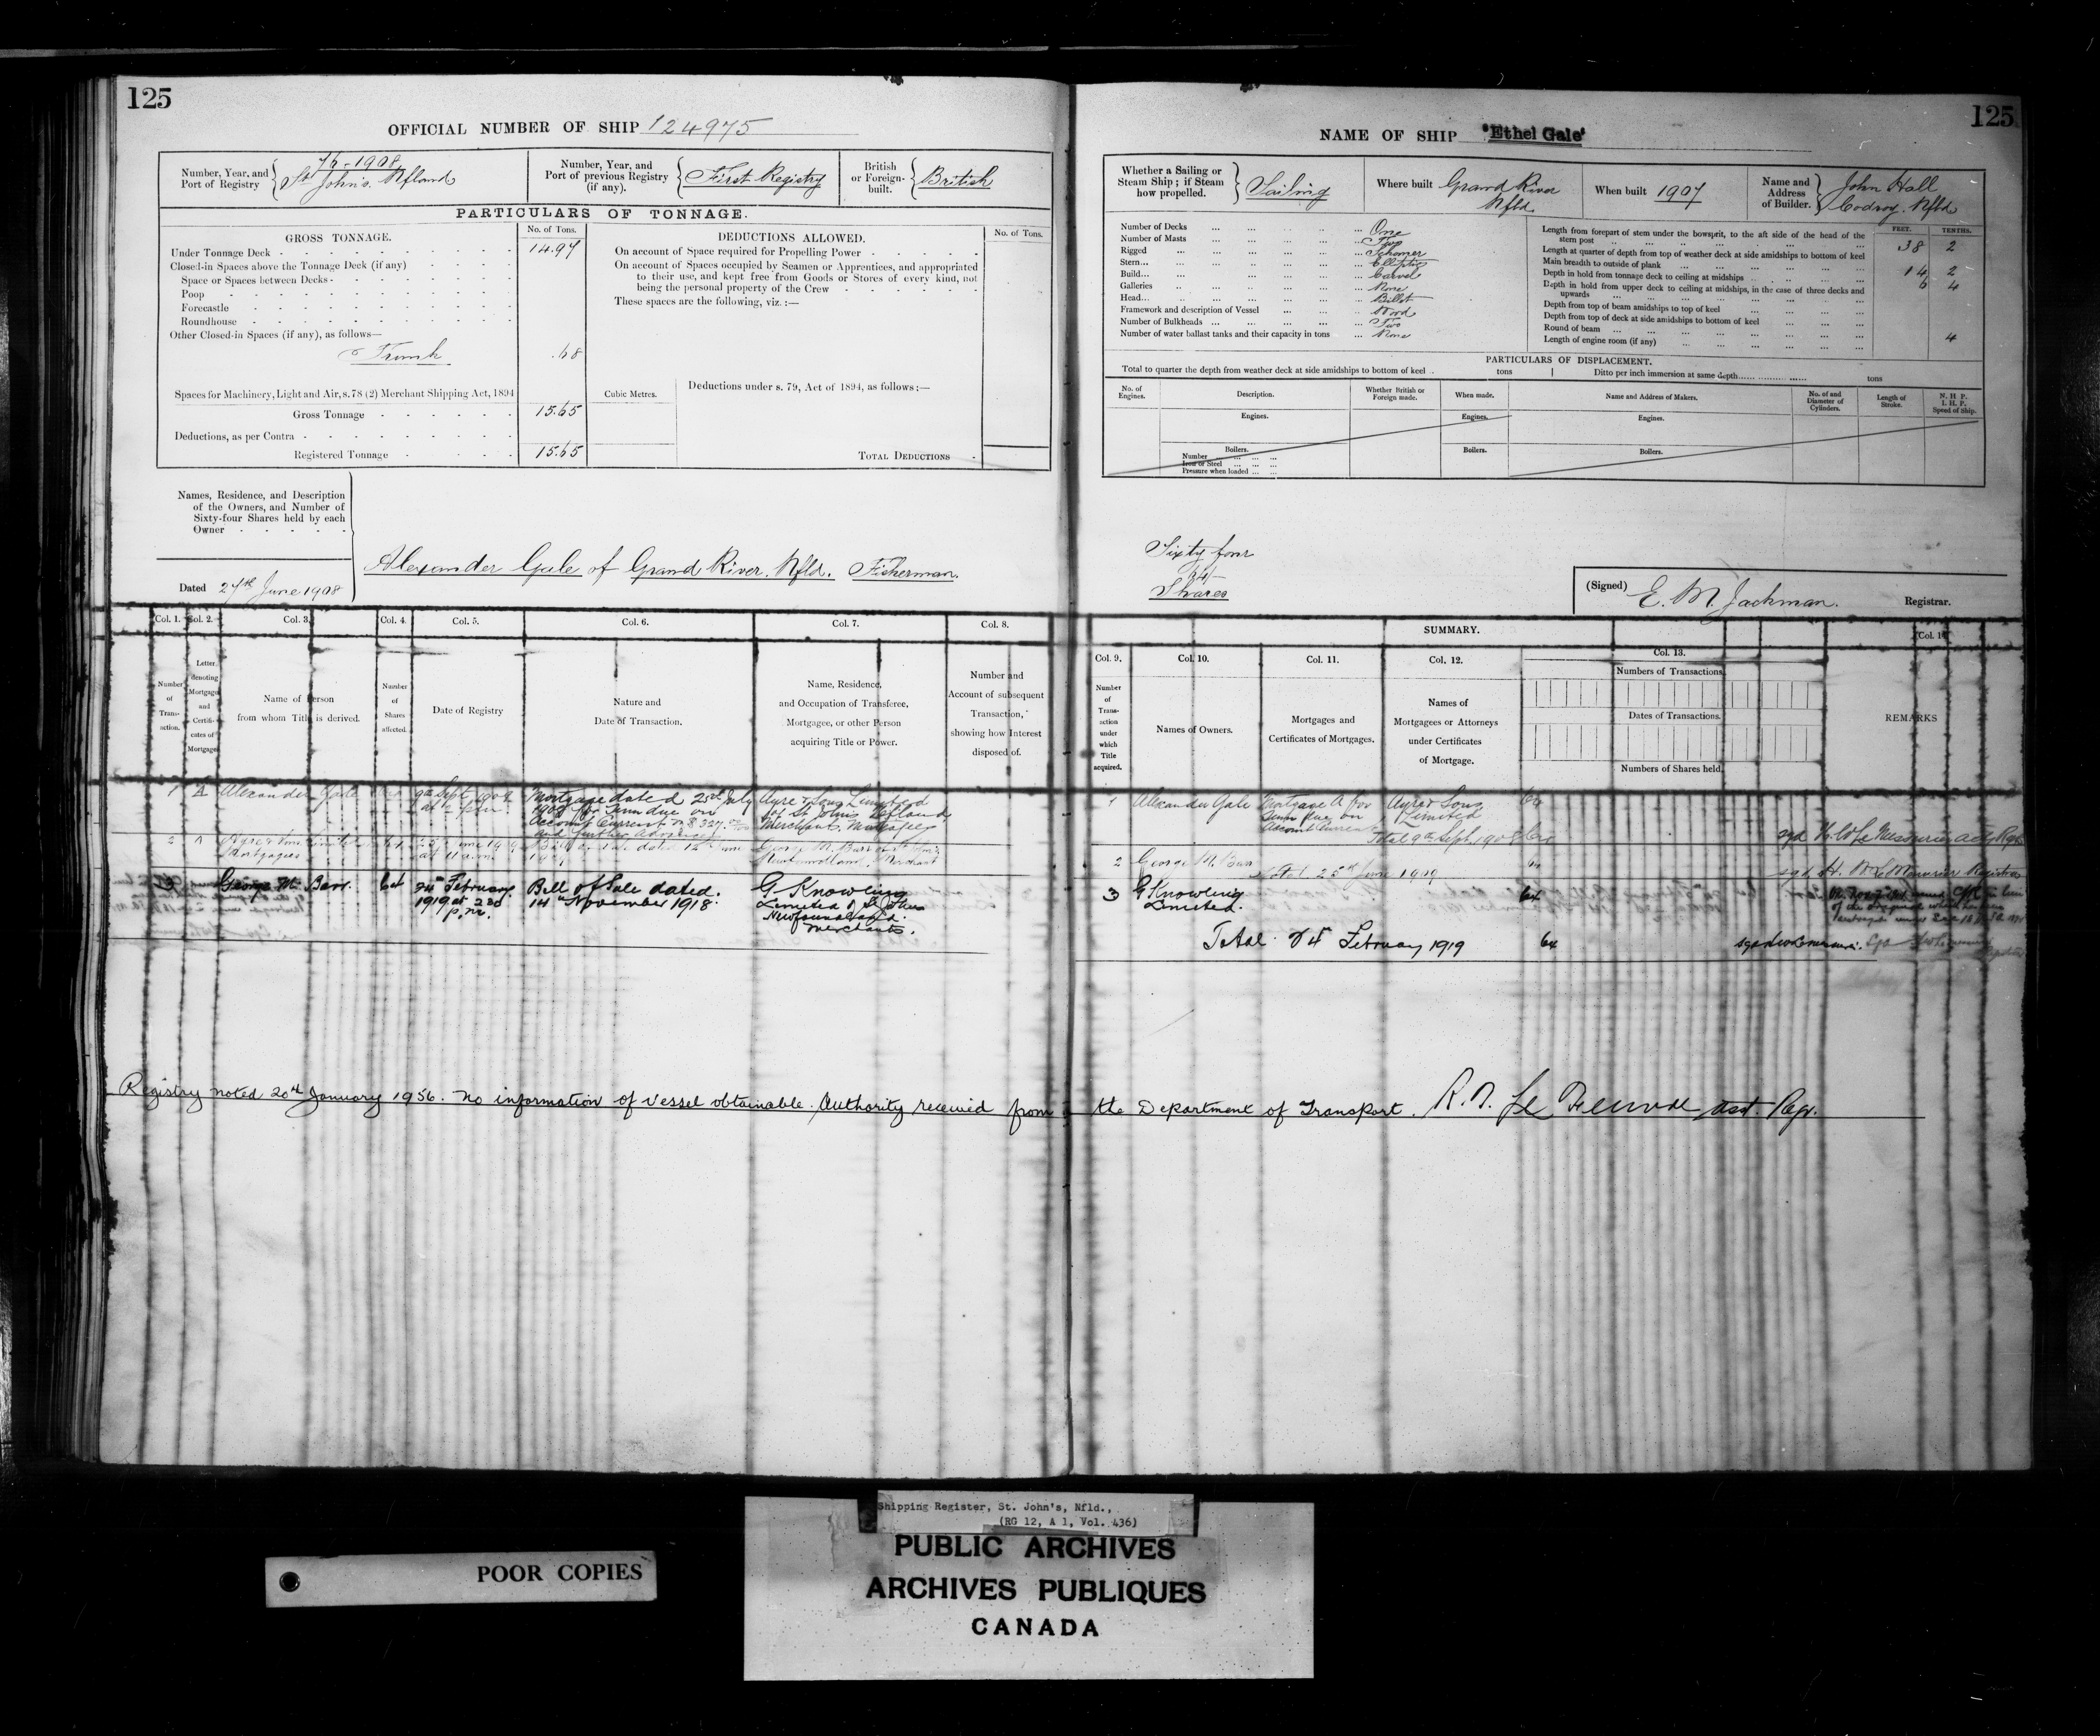 125
OFFICIAL NUMBER OF SHIP 124975
Number, Year, and Port of Registry
1908
St John's. Nfland
Number, Year, and Port of previous Registry (if any).
First Registry
British or Foreign-built.
British
PARTICULARS OF TONNAGE.
GROSS TONNAGE.
No. of Tons.
DEDUCTIONS ALLOWED.
No. of Tons.
Under Tonnage Deck 14.97
Closed-in Spaces above the Tonnage Deck (if any)
Space or Spaces between Decks
Poop
Forecastle
Roundhouse
Other Closed-in Spaces (if any), as follows—
Trunk .68
Spaces for Machinery, Light and Air, s. 78 (2) Merchant Shipping Act, 1894
Gross Tonnage 15.65
Deductions, as per Contra
Registered Tonnage 15.65
On account of Space required for Propelling Power
On account of Spaces occupied by Seamen or Apprentices, and appropriated
to their use, and kept free from Goods or Stores of every kind, not
being the personal property of the Crew
These spaces are the following, viz.:—
Cubic Metres.
Deductions under s. 79, Act of 1894, as follows:—
TOTAL DEDUCTIONS
Names, Residence, and Description
of the Owners, and Number of
Sixty-four Shares held by each
Owner
Alexander Gale of Grand River. Nfld. Fisherman.
Dated 27th June 1908
Col. 1. Col. 2. Col. 3. Col. 4. Col. 5. Col. 6. Col. 7. Col. 8.
Number of Transaction.
Letter denoting Mortgage and Certificates of Mortgage
Name of Person from whom Title is derived.
Number of Shares affected.
Date of Registry
Nature and Date of Transaction.
Name, Residence, and Occupation of Transferee, Mortgagee, or other Person acquiring Title or Power.
Number and Account of subsequent Transaction, showing how Interest disposed of.
1 A Alexander Gale 9th Sept. 1908
Mortgage dated July
1908 for sum due on
Account Current
and further Advances
Ayre & Sons Limited
of St Johns Nfland
Merchants, Mortgagees
2 A Ayre & Sons Limited
Mortgagees
Bill of Sale dated June
George M. Barr of St John's
Newfoundland, Merchant
3 George M. Barr. 64 February
1919 at
p.m.
Bill of Sale dated.
14th November 1918.
G Knowling
Limited of St Johns
Newfoundland.
Merchants.
125
NAME OF SHIP "Ethel Gale"
Whether a Sailing or Steam Ship; if Steam how propelled.
Sailing
Where built Grand River Nfld.
When built 1907
Name and Address of Builder.
John Hall
Codroy. Nfld
Number of Decks One
Number of Masts Two
Rigged Schooner
Stern Elliptic
Build Carvel
Galleries None
Head Billet
Framework and description of Vessel Wood
Number of Bulkheads Two
Number of water ballast tanks and their capacity in tons None
FEET. TENTHS.
Length from forepart of stem under the bowsprit, to the aft side of the head of the stern post 38 2
Length at quarter of depth from top of weather deck at side amidships to bottom of keel
Main breadth to outside of plank 14 2
Depth in hold from tonnage deck to ceiling at midships 6 4
Depth in hold from upper deck to ceiling at midships, in the case of three decks and upwards
Depth from top of beam amidships to top of keel
Depth from top of deck at side amidships to bottom of keel
Round of beam 4
Length of engine room (if any)
PARTICULARS OF DISPLACEMENT.
Total to quarter the depth from weather deck at side amidships to bottom of keel tons
Ditto per inch immersion at same depth tons
No. of Engines. Description. Whether British or Foreign made. When made. Name and Address of Makers. No. of and Diameter of Cylinders. Length of Stroke. N. H. P. I. H. P. Speed of Ship.
Engines. Engines. Engines.
Boilers. Boilers. Boilers.
Number
Iron or Steel
Pressure when loaded
Sixty four
64
Shares
(Signed) E. M. Jackman. Registrar.
SUMMARY.
Col. 9. Col. 10. Col. 11. Col. 12. Col. 13. Col. 14
Number of Transaction under which Title acquired.
Names of Owners.
Mortgages and Certificates of Mortgages.
Names of Mortgagees or Attorneys under Certificates of Mortgage.
Numbers of Transactions.
Dates of Transactions.
Numbers of Shares held
REMARKS
1 Alexander Gale Mortgage A for
sum due on
Account Current
Ayre & Sons
Limited
64
Total 9th Sept. 1908 64
2 George M. Barr 64
Total 25th June
sgd H. W. LeMessurier Registrar
3 G Knowling
Limited. 64
Total February 1919 64
Registry noted 20th January 1956. No information of vessel obtainable. Authority received from the Department of Transport. Asst. Rgr.
Shipping Register, St. John's, Nfld.,
(RG 12, A 1, Vol. 436)
POOR COPIES
PUBLIC ARCHIVES
ARCHIVES PUBLIQUES
CANADA